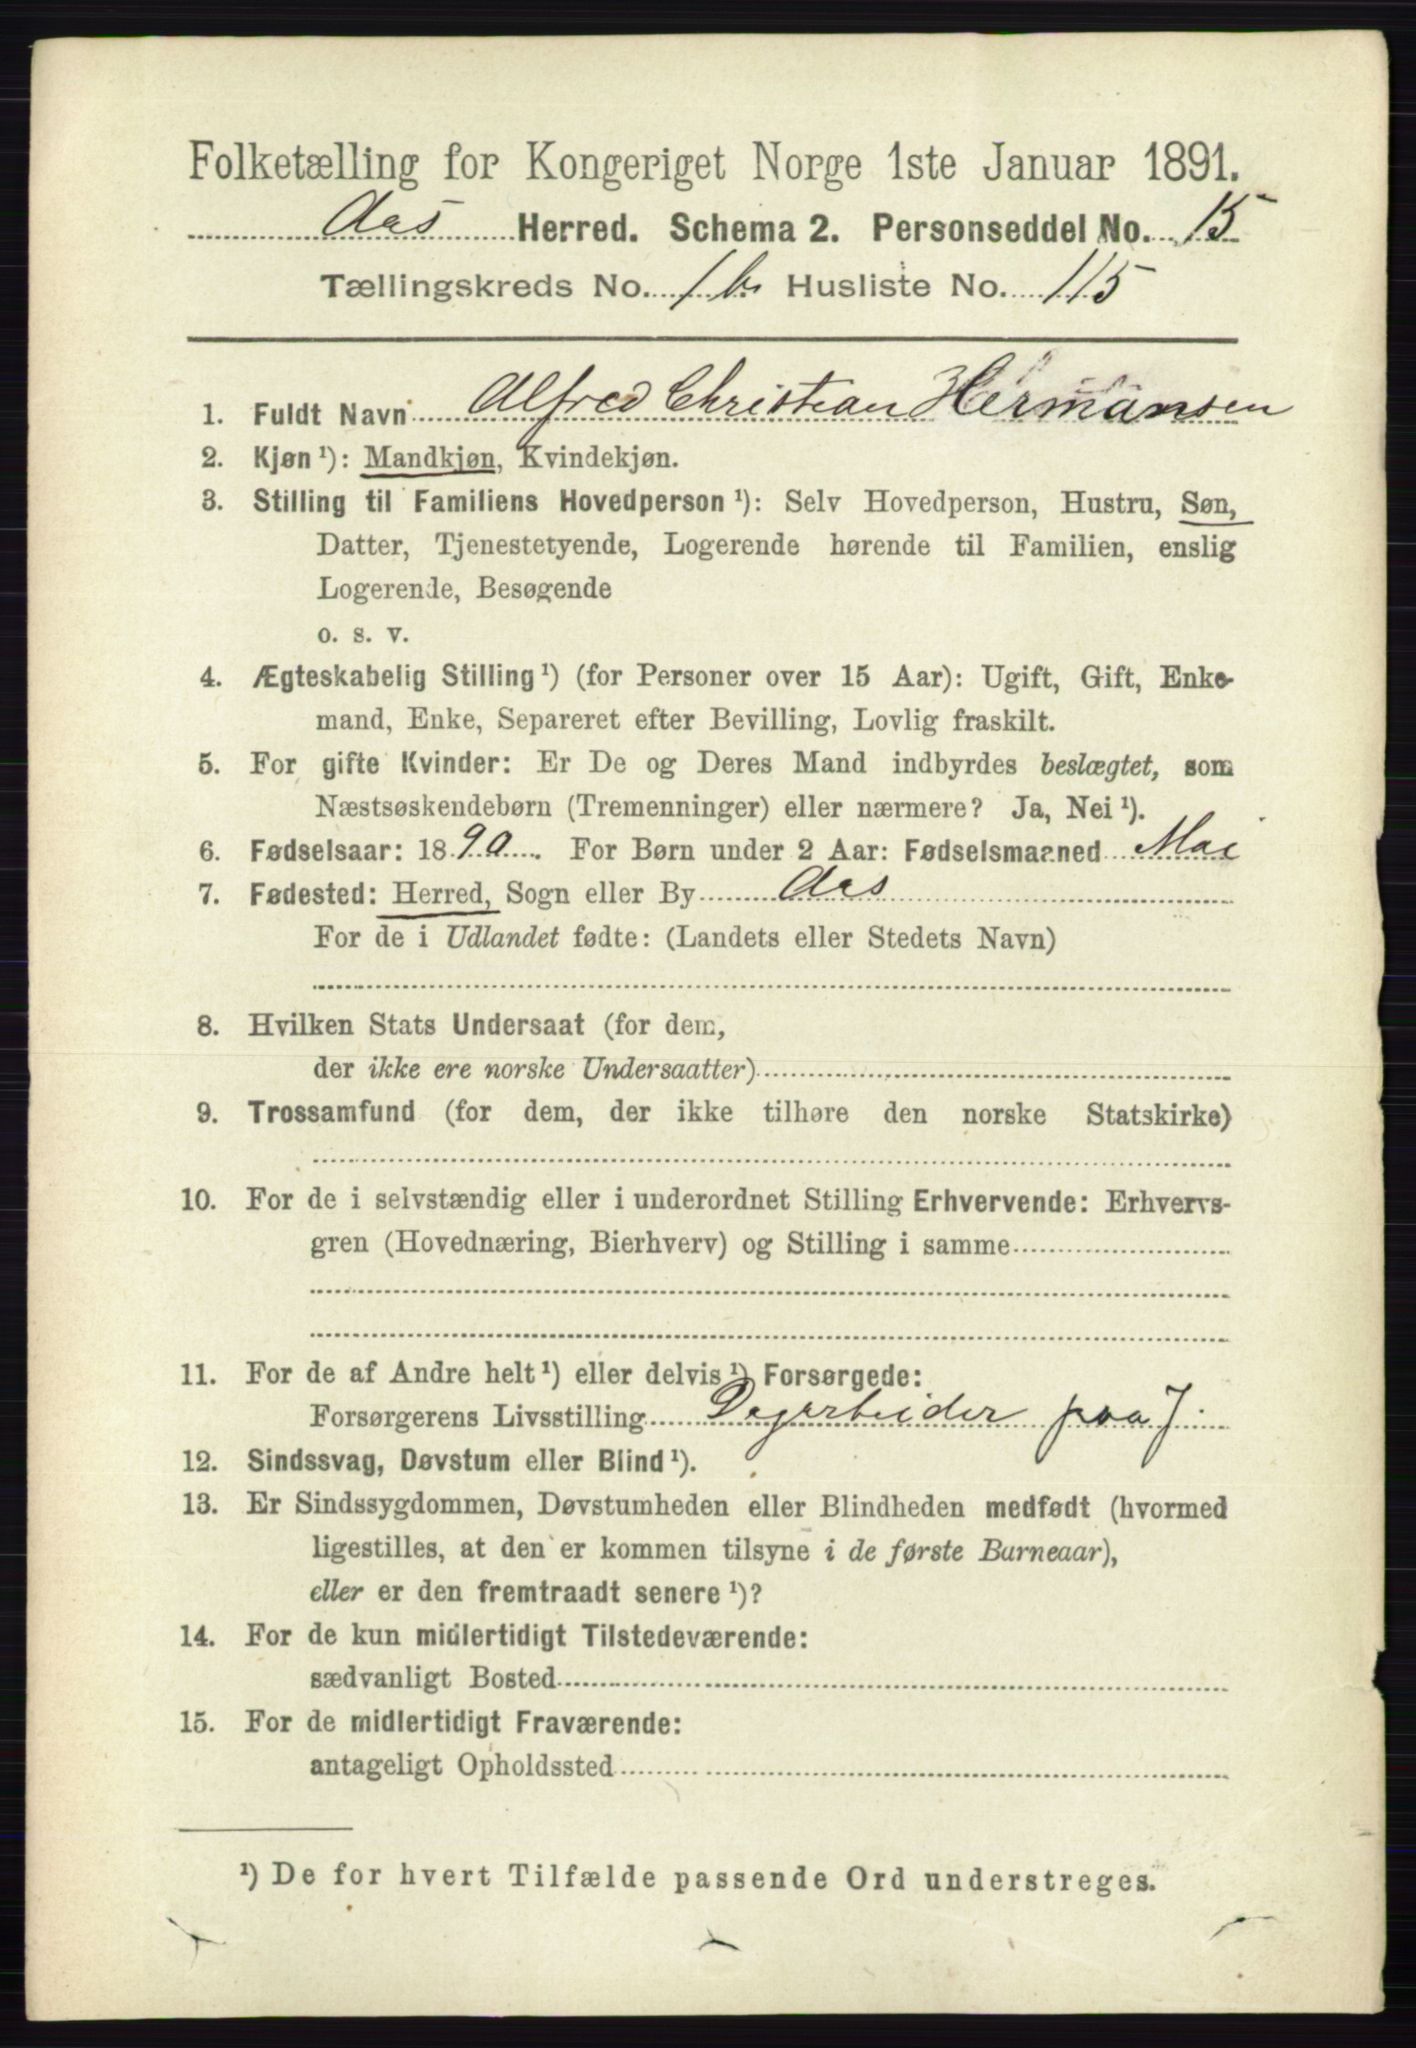 Folketælling for Kongeriget Norge 1ste Januar 1891.
Aas Herred. Schema 2. Personseddel No. 15
Tællingskreds No. 1 b. Husliste No. 115
1. Fuldt Navn Alfred Christian Hermansen
2. Kjøn ¹): Mandkjøn, Kvindekjøn.
3. Stilling til Familiens Hovedperson ¹): Selv Hovedperson, Hustru, Søn,
Datter, Tjenestetyende, Logerende hørende til Familien, enslig
Logerende, Besøgende
o. s. v.
4. Ægteskabelig Stilling ¹) (for Personer over 15 Aar): Ugift, Gift, Enke-
mand, Enke, Separeret efter Bevilling, Lovlig fraskilt.
5. For gifte Kvinder: Er De og Deres Mand indbyrdes beslægtet, som
Næstsøskendebørn (Tremenninger) eller nærmere? Ja, Nei ¹).
6. Fødselsaar: 1890. For Børn under 2 Aar: Fødselsmaaned Mai
7. Fødested: Herred, Sogn eller By Aas
For de i Udlandet fødte: (Landets eller Stedets Navn)
8. Hvilken Stats Undersaat (for dem,
der ikke ere norske Undersaatter)
9. Trossamfund (for dem, der ikke tilhøre den norske Statskirke)
10. For de i selvstændig eller i underordnet Stilling Erhvervende: Erhvervs-
gren (Hovednæring, Bierhverv) og Stilling i samme
11. For de af Andre helt ¹) eller delvis ¹) Forsørgede:
Forsørgerens Livsstilling Dagarbeider paa J.
12. Sindssvag, Døvstum eller Blind ¹).
13. Er Sindssygdommen, Døvstumheden eller Blindheden medfødt (hvormed
ligestilles, at den er kommen tilsyne i de første Barneaar),
eller er den fremtraadt senere ¹)?
14. For de kun midlertidigt Tilstedeværende:
sædvanligt Bosted
15. For de midlertidigt Fraværende:
antageligt Opholdssted
¹) De for hvert Tilfælde passende Ord understreges.